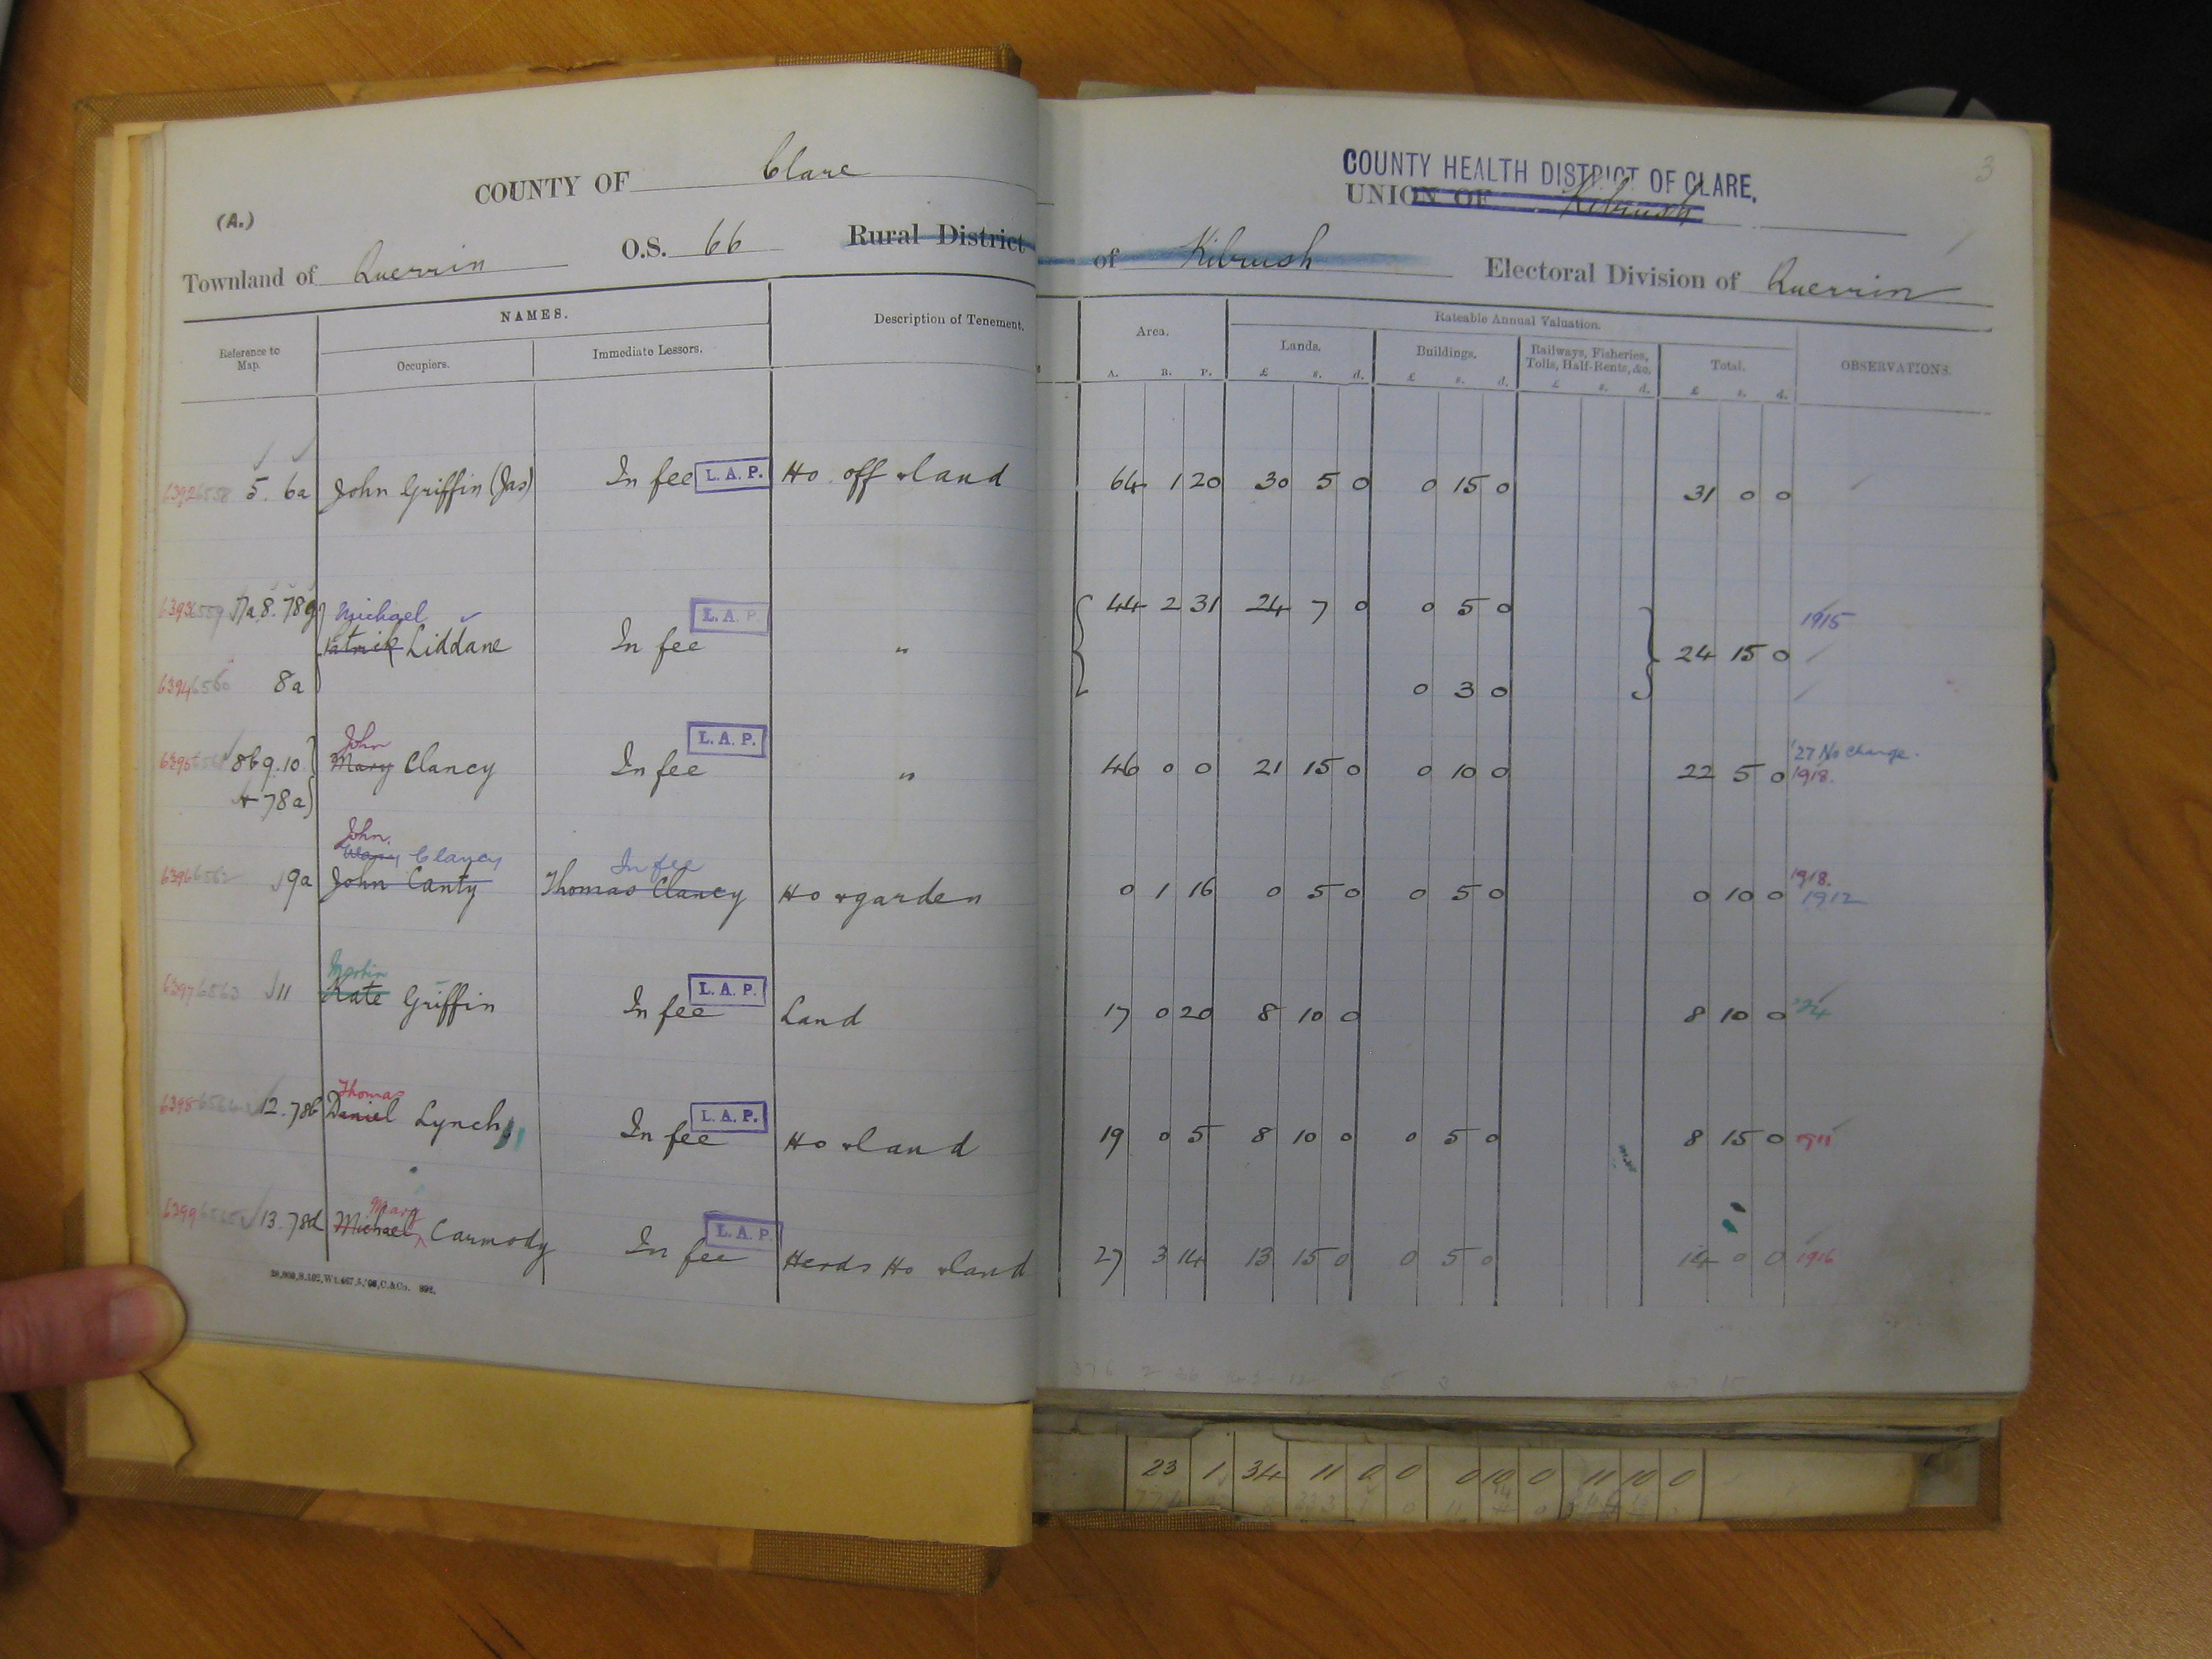 COUNTY OF Clare
COUNTY HEALTH DISTRICT OF CLARE.
3
(A.)
UNION OF Kilrush
Townland of Querrin O.S. 66 Rural District of Kilrush Electoral Division of Querrin
NAMES.
Rateable Annual Valuation.
Reference to Map. Occupiers. Immediate Lessors. Description of Tenement. Area. Lands. Buildings. Railways, Fisheries, Tolls, Half-Rents, &c. Total. OBSERVATIONS.
A. R. P. £ s. d. £ s. d. £ s. d. £ s. d.
6392 6558 5. 6a John Griffin (Jas) In fee L. A. P. Ho. off & land 64 1 20 30 5 0 0 15 0 31 0 0
6393 6559 7a. 8. 78g Michael L. A. P. 44 2 31 24 7 0 0 5 0 1915
Patrick Liddane In fee " 24 15 0
6394 6560 8a 0 3 0
John L. A. P. '27 No change.
6395 8b 9. 10 Mary Clancy In fee " 46 0 0 21 15 0 0 10 0 22 5 0 1918.
+ 78a
John
Mary Clancy In fee 1918.
6396 6562 9a John Canty Thomas Clancy Ho & garden 0 1 16 0 5 0 0 5 0 0 10 0 1912
Martin L. A. P.
6397 6563 11 Kate Griffin In fee Land 17 0 20 8 10 0 8 10 0 '24
Thomas L. A. P.
6398 12. 78b Daniel Lynch In fee Ho & land 19 0 5 8 10 0 0 5 0 8 15 0 1911
Mary L. A. P.
6399 13. 78d Michael Carmody In fee Herds Ho & land 27 3 14 13 15 0 0 5 0 14 0 0 1916
23 1 34 11 0 0 0 10 0 11 10 0